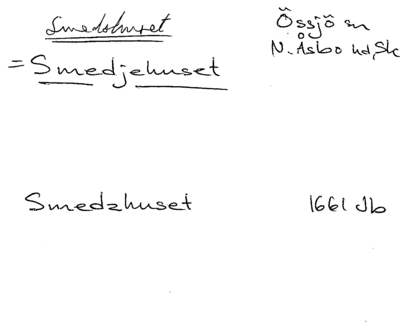 Smedshuset
Össjö sn
N. Åsbo hd, Sk
= Smedjehuset
Smedzhuset 1661 Jb